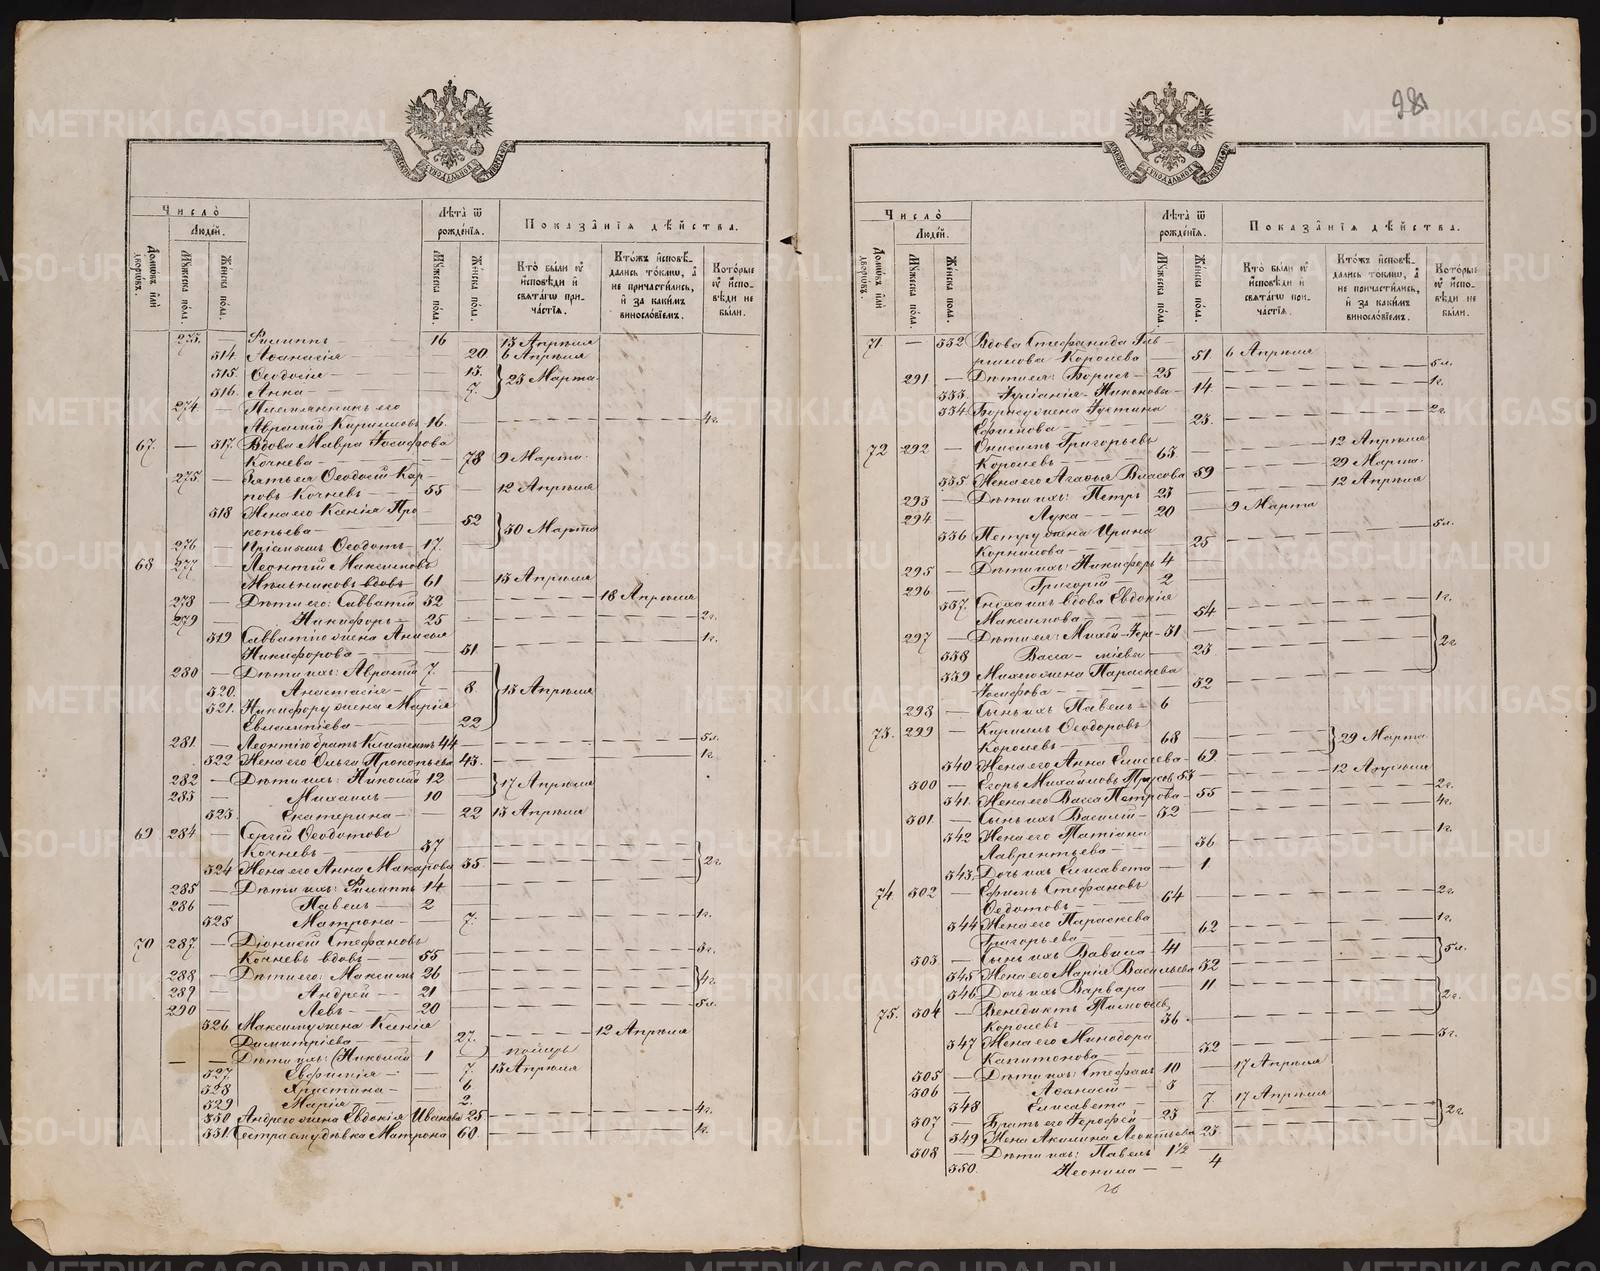 METRIKI.GASO-URAL.RU
98
Число
Людей.
Домовъ или дворовъ.
Мужеска пола.
Женска пола.
Лѣта ѿ рожденїя.
Мужеска пола.
Женска пола.
Показанїя дѣйства.
Кто были у исповѣди и святагѡ причастїя.
Ктожъ исповѣдались токмѡ, а не причастились, и за какимъ винословїемъ.
Которые у исповѣди не были.
273. — Филиппъ — 16 13 Апрѣля
314. Аѳанасія — 20. 6 Апрѣля
315. Ѳеодосія — 13.
316. Анна — 7. 25 Марта
274. — Племянникъ его
Аврамій Кириловъ 16. 4г.
67. — 317. Вдова Мавра Іосифова
Кочнева — 78 9 Марта
275. — Зятья Ѳеодосій Кар
повъ Кочневъ — 55 12 Апрѣля
318 Жена его Ксенія Про
копьева — 52 30 Марта
276 — Ѳеодотъ — 17.
68 277 — Леонтій Максимовъ
Мѣльниковъ вдовъ 61 13 Апрѣля
278 — Дѣти его: Савватій 32 18 Апрѣля
279 — Никифоръ — 25 2г.
319 Савватію жена Анисья 1г.
Никифорова — 31.
280 — Дѣти ихъ: Аврамій 7.
320. Анастасія — 8. 13 Апрѣля
321. Никифору жена Марія
Евлампіева — 22
281. — Леонтію братъ Климентъ 44 5л.
322 Жена его Ольга Прокопьева 43. 1г.
282 — Дѣти ихъ: Николай 12 17 Апрѣля
283 — Михаилъ — 10
323. Екатерина — 22 13 Апрѣля
69 284 — Сергій Ѳеодотовъ
Кочневъ 37
324 Жена его Анна Макарова 35. 2г.
285 — Дѣти ихъ: Филиппъ 14
286 — Павелъ — 2
325 Матрона — 7. 1г.
70 287. — Діонисій Стефановъ
Кочневъ вдовъ — 55 3г.
288 — Дѣти его: Максимъ 26 4г.
289 — Андрей — 21
290 — Левъ — 20 5л.
326 Максиму жена Ксенія 12 Апрѣля
Димитріева — 27.
— — Дѣти ихъ: (Николай 1 )
327. Евфимія — 7. 13 Апрѣля
328 Христина — 6
329 Марія — 2.
330 Андрею жена Евдокія Иванова 25 4г.
331 Сестра ему дѣвка Матрона 60. 1г.
Число
Людей.
Домовъ или дворовъ.
Мужеска пола.
Женска пола.
Лѣта ѿ рожденїя.
Мужеска пола.
Женска пола.
Показанїя дѣйства.
Кто были у исповѣди и святагѡ причастїя.
Ктожъ исповѣдались токмѡ, а не причастились, и за какимъ винословїемъ.
Которые у исповѣди не были.
71 — 332 Вдова Стефанида
Королева — 51 6 Апрѣля
291 — Дѣти ея: Борисъ — 25 5л.
333. Никонова — 14 1г.
334 Борису жена Іустина 2г.
Ефимова — 23.
72 292 — Онисимъ Григорьевъ 12 Апрѣля
Королевъ — 63. 29 Марта
335 Жена его Агафья Власова 59 12 Апрѣля
293 — Дѣти ихъ: Петръ 23
294 Лука — 20 9 Марта
336 Петру жена Ирина 5л.
Корнилова — 25
295 — Дѣти ихъ: Никифоръ 4
296 — Григорій — 2
337. Сноха ихъ вдова Евдокія 1г.
Максимова — 54
297 — Дѣти ея: Михей 31
338 Васса — 23 2г
339 Михею жена Параскева
Іосифова — 32
298 — Сынъ ихъ Павелъ — 6
73. 299 — Кирилъ Ѳеодоровъ
Королевъ — 68 29 Марта
340 Жена его Анна Елисѣева — 69
300 — Егоръ Михайловъ 53 12 Апрѣля
341. Жена его Васса Петрова — 55 2г.
301. — Сынъ ихъ Василій — 32 4г.
342 Жена его Татіана 1г.
Лаврентьева — 36
343. Дочь ихъ Елисавета — 1
74. 302 — Ефимъ Стефановъ
Ѳедотовъ — 64 2г.
344 Жена его Параскева 1г.
Григорьева — 62
303 — Сынъ ихъ Вавила — 41 5л.
345 Жена его Марія Васильева 32
346 Дочь ихъ Варвара — 11
75. 304 — Венедиктъ Тимофеевъ 2г.
Королевъ — 36.
347 Жена его Минодора 3г.
Капитонова — 32
305 — Дѣти ихъ: Стефанъ 10 17 Апрѣля
306 — Аѳанасій — 3
348 Елисавета — 7 17 Апрѣля
307 — Братъ его Іерофей — 23 2г.
349 Жена Акилина Леонтьева 23
308 — Дѣти ихъ: Павелъ 1½
350. Неонила — — 4